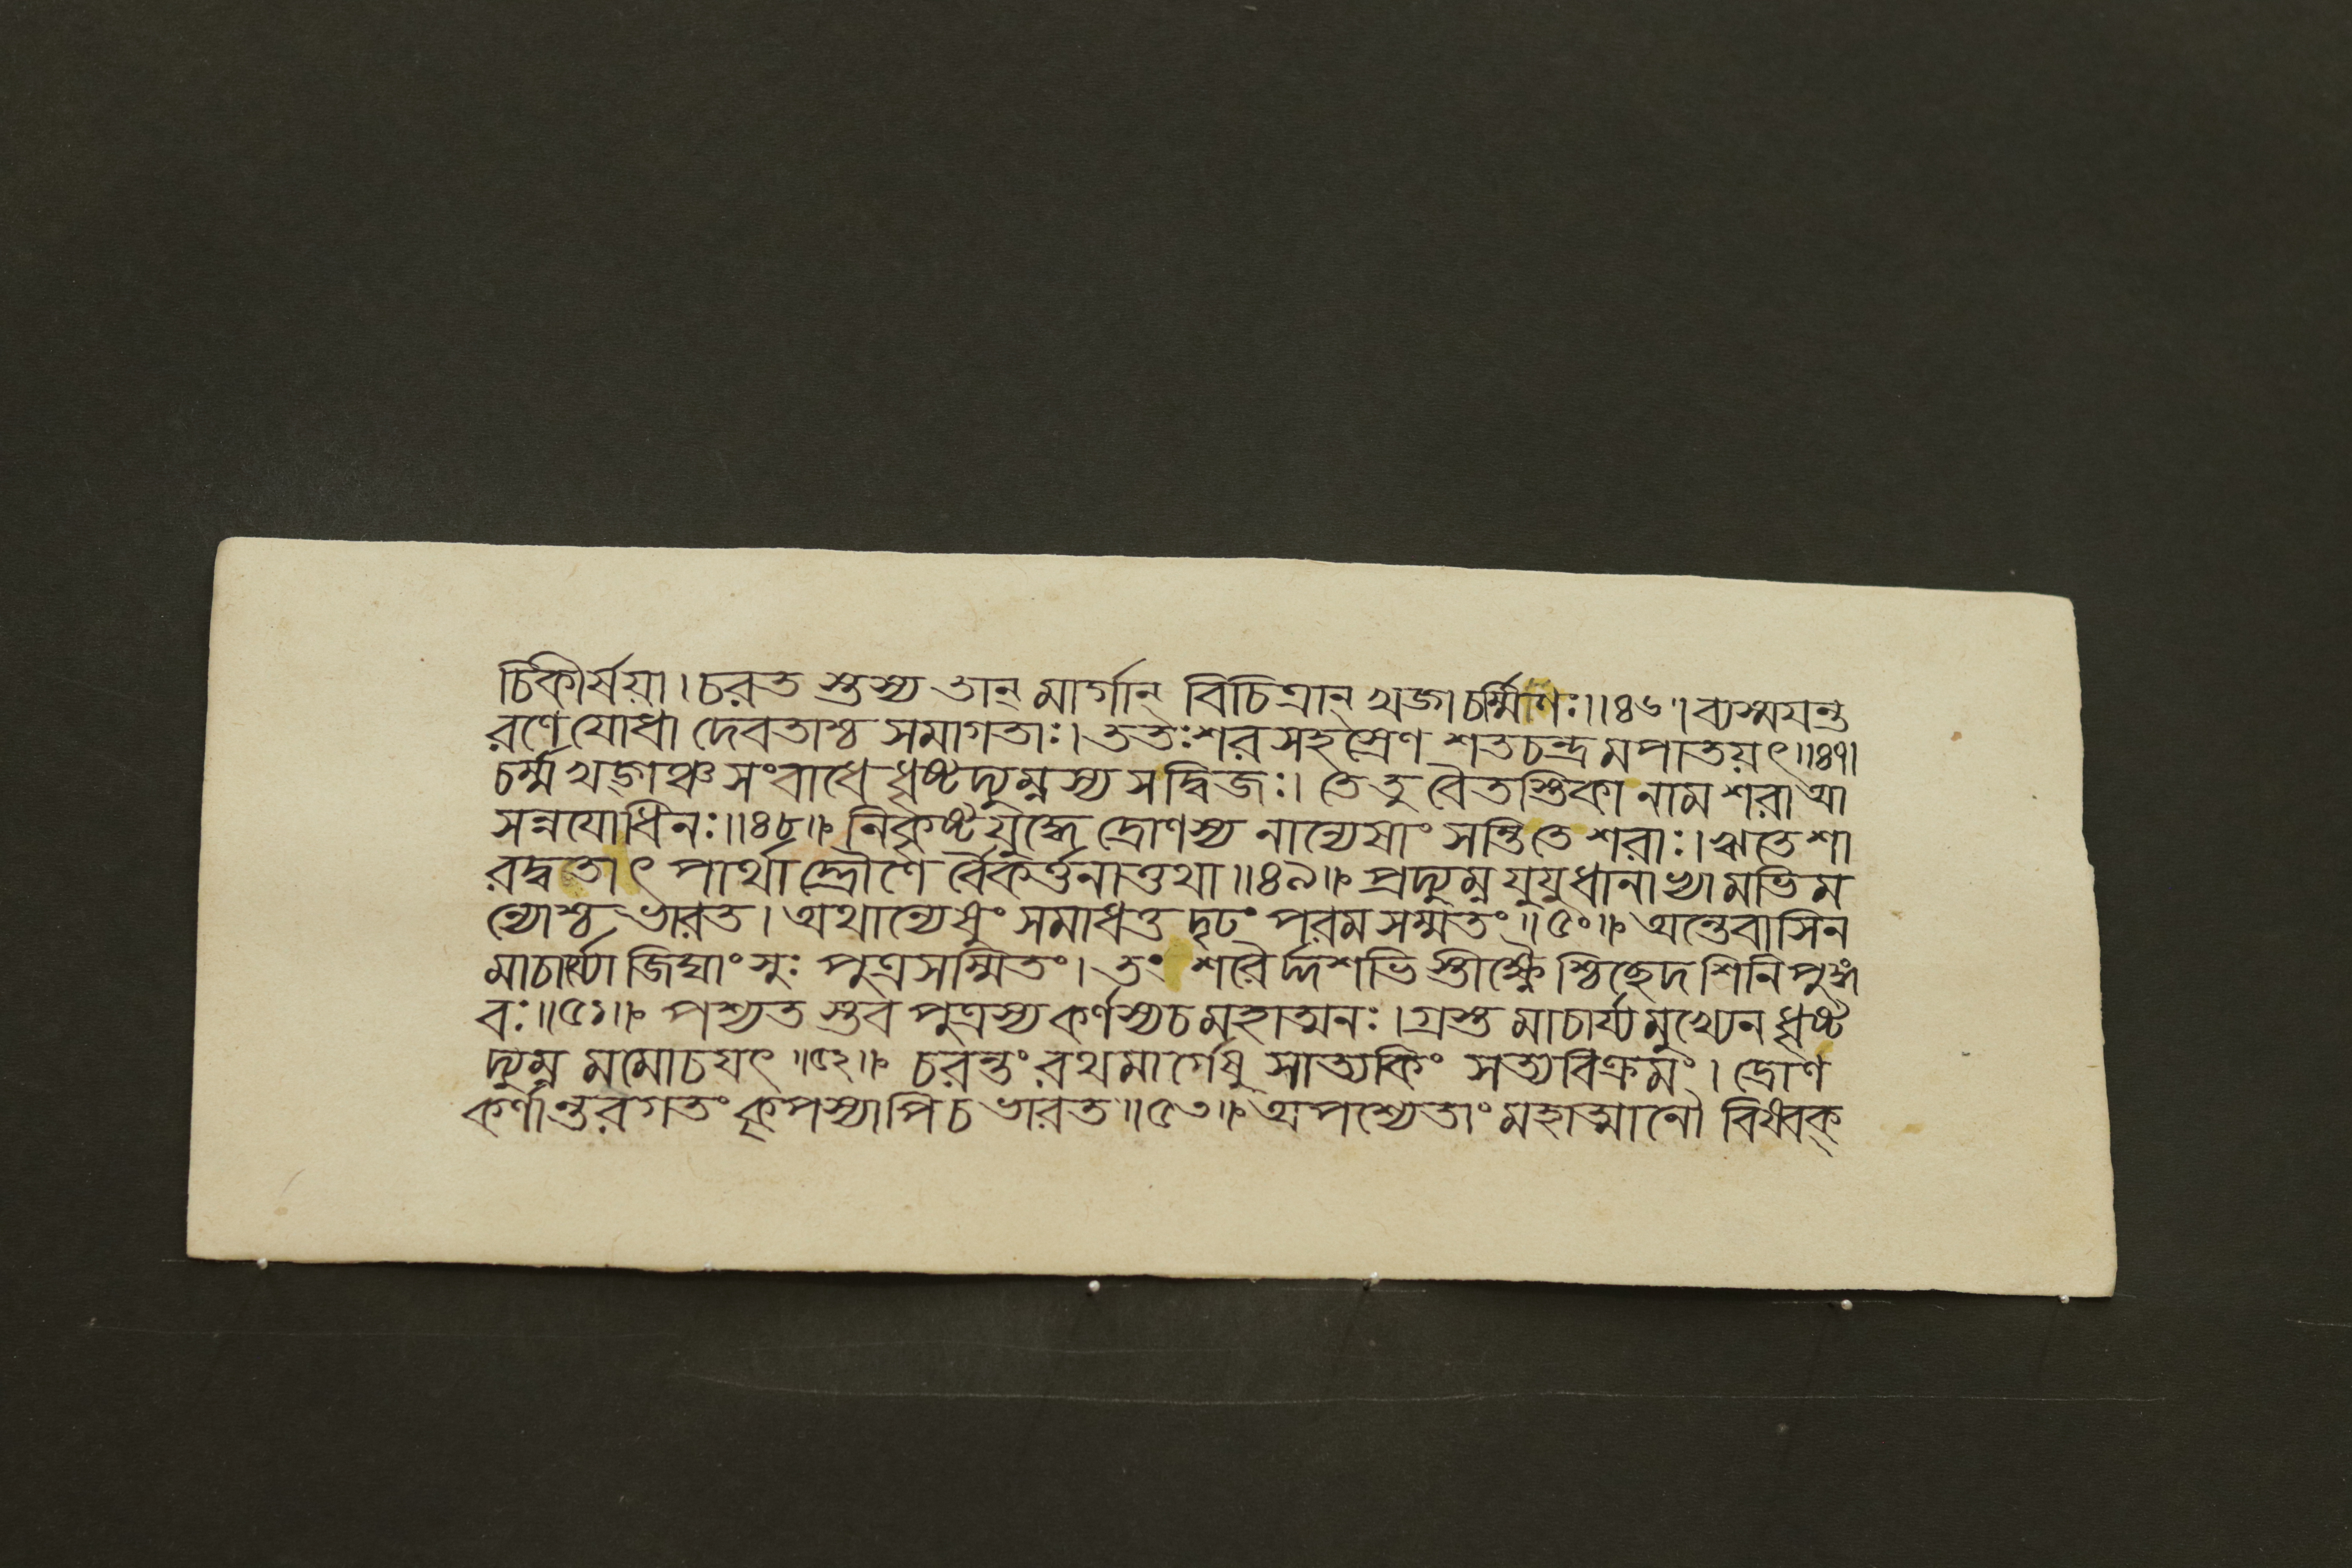 চিকীর্ষয়া। চরত স্তস্য তান্ মার্গান্ বিচিত্রান্ খড়্গচর্ম্মিণঃ॥৪৬॥ ব্যস্ময়ন্ত
রণে যোধা দেবতাশ্চ সমাগতাঃ। ততঃ শর সহস্রেণ শতচন্দ্র মপাতয়ৎ॥৪৭।
চর্ম্ম খড়্গঞ্চ সংবাধে ধৃষ্টদ্যুম্নস্য সদ্বিজঃ। তে তু বৈতস্তিকা নাম শরা আ
সন্নযোধিনঃ॥৪৮॥ নিকৃষ্ট যুদ্ধে দ্রোণস্য নান্যেষাং সন্তি তে শরাঃ। ঋতে শা
রদ্বতাৎ পার্থা দ্দ্রৌণে র্বৈকর্ত্তনাত্তথা॥৪৯॥ প্রদ্যুম্ন যুযুধানাভ্যামভিম
ন্যোশ্চ ভারত। অথান্যেষুং সমাধত্ত দৃঢং পরম সম্মতং॥৫০॥ অন্তেবাসিন
মাচার্য্যো জিঘাংসুঃ পুত্রসম্মিতং। তং শরৈর্দ্দশভি স্তীক্ষ্ণৈ শ্চিচ্ছেদ শিনিপুঙ্গ
বঃ॥৫১॥ পশ্যত স্তব পুত্রস্য কর্ণস্য চ মহাত্মনঃ। গ্রস্ত মাচার্য্য মুখ্যেন ধৃষ্ট
দ্যুম্ন মমোচয়ৎ॥৫২॥ চরন্তং রথমার্গেষু সাত্যকিং সত্যবিক্রমং। দ্রোণ
কর্ণান্তরগতং কৃপস্যাপি চ ভারত॥৫৩॥ অপশ্যেতাং মহাত্মানৌ বিষ্বক্